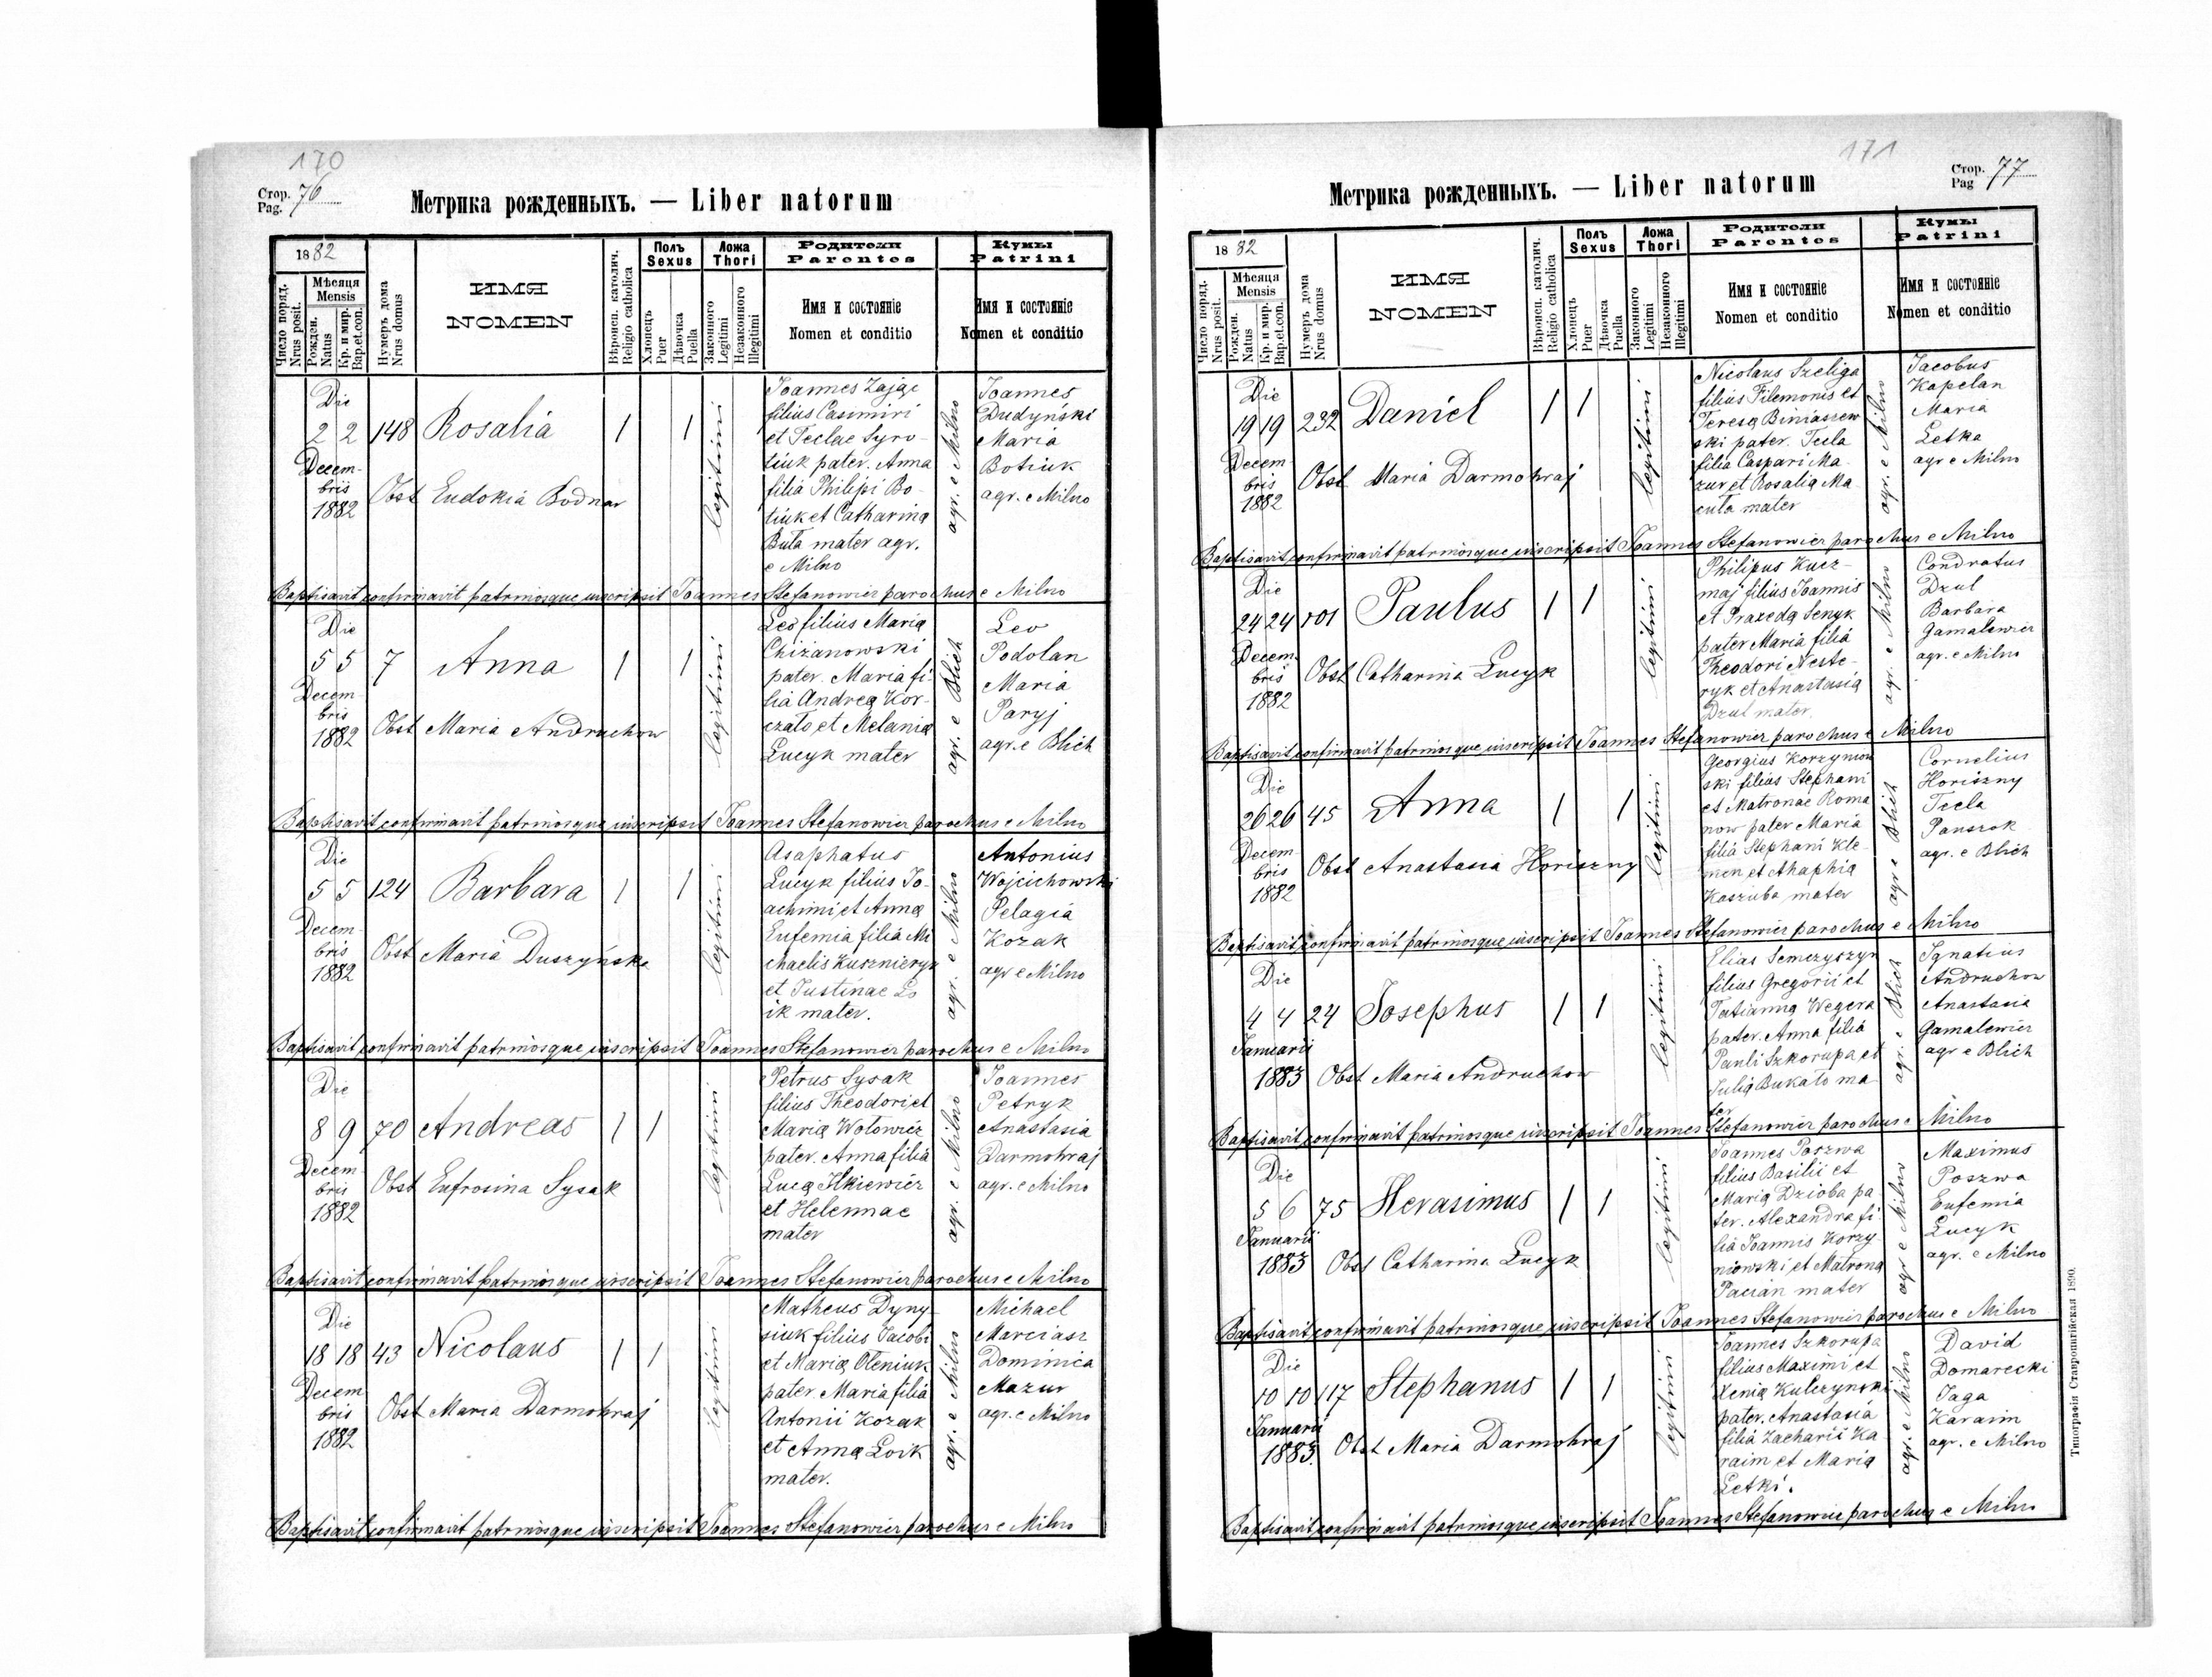 170
Стор. 76
Pag.
Метрика рожденныхъ. — Liber natorum
1882
Число поряд.
Nrus posit.
Мѣсяця
Mensis
Рожден.
Natus
Кр. и мир.
Bap.et.con.
Нумеръ дома
Nrus domus
ИМЯ
NOMEN
Вѣроисп. католич.
Religio catholica
Полъ
Sexus
Хлопецъ
Puer
Дѣвочка
Puella
Ложа
Thori
Законного
Legitimi
Незаконного
Illegitimi
Родители
Parentes
Имя и состоянie
Nomen et conditio
Кумы
Patrini
Имя и состоянie
Nomen et conditio
Die
2 2 148 Rosalia 1 1
Decem-
bris
1882
Obst Eudokia Bodnar
legitimi
Ioannes Zając
filius Casimiri
et Teclae Syro-
tiuk pater. Anna
filia Philipi Bo-
tiuk et Catharina
Buta mater agr.
e Milno
agr. e Milno
Ioannes
Dudyński
Maria
Botiuk
agr. e Milno
Baptisavit confirmavit patrinosque inscripsit Ioannes Stefanowicz parochus e Milno
Die
5 5 7 Anna 1 1
Decem-
bris
1882
Obst Maria Andruchow
legitimi
Leo filius Maria
Chiżanowski
pater. Maria fi-
lia Andrea Kor-
czato et Melania
Lucyk mater
agr. e Blich
Leo
Podolan
Maria
Paryj
agr. e Blich
Baptisavit confirmavit patrinosque inscripsit Ioannes Stefanowicz parochus e Milno
Die
5 5 124 Barbara 1 1
Decem-
bris
1882
Obst Maria Duszyńska
legitimi
Asaphatus
Lucyk filius Io-
achimi et Anna
Eufemia filia Mi
chaelis Kusznieryk
et Iustinae Lo
ik mater.
agr. e Milno
Antonius
Wojcichowski
Pelagia
Kozak
agr e Milno
Baptisavit confirmavit patrinosque inscripsit Ioannes Stefanowicz parochus e Milno
Die
8 9 70 Andreas 1 1
Decem-
bris
1882
Obst Eufrosina Sysak
legitimi
Petrus Sysak
filius Theodori et
Maria Wołowicz
pater. Anna filia
Luca Ilkiewicz
et Helennae
mater
agr. e Milno
Ioannes
Petryk
Anastasia
Darmohraj
agr. e Milno
Baptisavit confirmavit patrinosque inscripsit Ioannes Stefanowicz parochus e Milno
Die
18 18 43 Nicolaus 1 1
Decem
bris
1882
Obst Maria Darmohraj
legitimi
Matheus Dyny-
siuk filius Iacobi
et Maria Oleniuk
pater. Maria filia
Antonii Kozak
et Anna Loik
mater.
agr. e Milno
Michael
Marciasz
Dominica
Mazur
agr. e Milno
Baptisavit confirmavit patrinosque inscripsit Ioannes Stefanowicz parochus e Milno
171
Стор. 77
Pag
Метрика рожденныхъ. — Liber natorum
1882
Число поряд.
Nrus posit.
Мѣсяця
Mensis
Рожден.
Natus
Кр. и мир.
Bap.et.con.
Нумеръ дома
Nrus domus
ИМЯ
NOMEN
Вѣроисп. католич.
Religio catholica
Полъ
Sexus
Хлопецъ
Puer
Дѣвочка
Puella
Ложа
Thori
Законного
Legitimi
Незаконного
Illegitimi
Родители
Parentes
Имя и состоянie
Nomen et conditio
Кумы
Patrini
Имя и состоянie
Nomen et conditio
Die
19 19 232 Daniel 1 1
Decem-
bris
1882
Obst Maria Darmohraj
legitimi
Nicolaus Szeliga
filius Filemonis et
Teresa Biniaszew
ski pater. Tecla
filia Caspari Ma-
zur et Rosalia Ma
cuta mater
agr. e Milno
Iacobus
Kapelan
Maria
Letka
agr e Milno
Baptisavit confirmavit patrinosque inscripsit Ioannes Stefanowicz parochus e Milno
Die
24 24 101 Paulus 1 1
Decem-
bris
1882
Obst Catharina Lucyk
legitimi
Philipus Kucz-
maj filius Ioannis
et Praxeda Senyk
pater Maria filia
Theodori Neste-
ryk et Anastasia
Dzul mater.
agr. e Milno
Condratus
Dzul
Barbara
Gamalewicz
agr. e Milno
Baptisavit confirmavit patrinosque inscripsit Ioannes Stefanowicz parochus e Milno
Die
26 26 45 Anna 1 1
Decem-
bris
1882
Obst Anastasia Horiszny
legitimi
Georgius Korzyniow
ski filius Stephani
et Matronae Roma
now pater Maria
filia Stephani Kle-
men et Ahaphia
Kaszuba mater
agr e Blich
Cornelius
Horiszny
Tecla
Panszok
agr. e Blich
Baptisavit confirmavit patrinosque inscripsit Ioannes Stefanowicz parochus e Milno
Die
4 4 24 Iosephus 1 1
Ianuarii
1883
Obst Maria Andruchow
legitimi
Elias Semczyszyn
filius Gregorii et
Tatianna Wegera
pater. Anna filia
Pauli Szkorupa et
Iulia Bukato ma
ter
agr. e Blich
Ignatius
Andruchow
Anastasia
Gamalewicz
agr e Blich
Baptisavit confirmavit patrinosque inscripsit Ioannes Stefanowicz parochus e Milno
Die
5 6 75 Herasimus 1 1
Ianuarii
1883
Obst Catharina Lucyk
legitimi
Ioannes Poszwa
filius Basilii et
Maria Dzioba pa
ter. Alexandra fi-
lia Ioannis Korzy-
niowski et Matrona
Pacian mater
agr e Milno
Maximus
Poszwa
Eufemia
Lucyk
agr. e Milno
Baptisavit confirmavit patrinosque inscripsit Ioannes Stefanowicz parochus e Milno
Die
10 10 117 Stephanus 1 1
Ianuarii
1883.
Obst Maria Darmohraj
legitimi
Ioannes Szkorupa
filius Maximi et
Xenia Kulczynski
pater. Anastasia
filia Zacharii Ka
raim et Maria
Letki.
agr. e Milno
David
Domarecki
Iaga
Karaim
agr. e Milno
Baptisavit confirmavit patrinosque inscripsit Ioannes Stefanowicz parochus e Milno
Типографія Ставропигійская 1890.